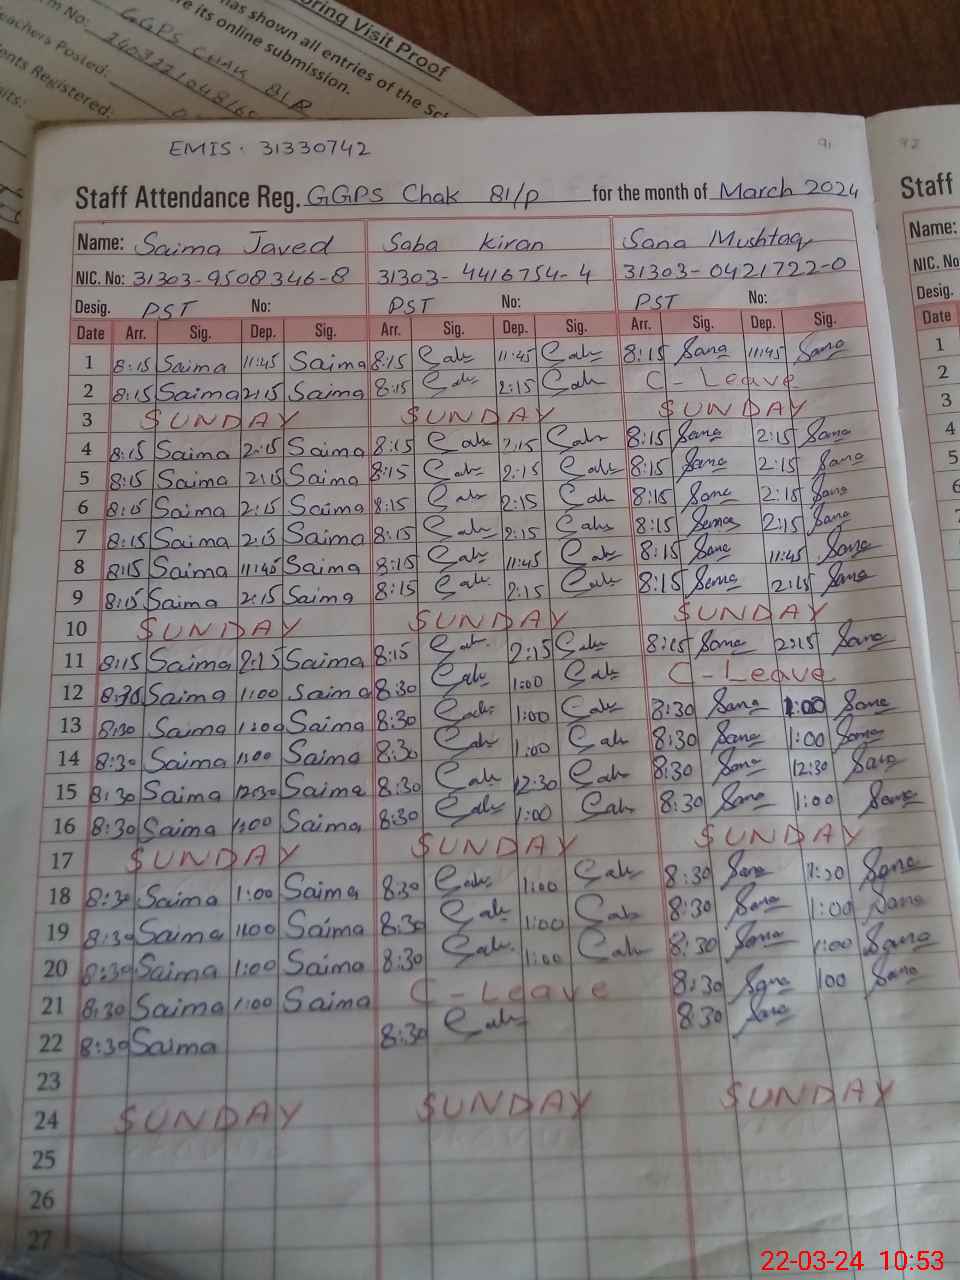 oring Visit Proof
has shown all entries of the Sch
re its online submission.
m No: GGPS CHAK 81P
eachers Posted:
ents Registered:
sits:
EMIS. 31330742
91
92
Staff Attendance Reg. GGPS Chak 81/P for the month of March 2024
Name: Saima Javed Saba Kiran Sana Mushtaq
NIC. No: 31303-9508346-8 31303-4416754-4 31303-0421722-0
Desig. PST No: PST No: PST No:
Date Arr. Sig. Dep. Sig. Arr. Sig. Dep. Sig. Arr. Sig. Dep. Sig.
1 8:15 Saima 11:45 Saima 8:15 11:45 8:15 Sana 11:45 Sana
2 8:15 Saima 2:15 Saima 8:15 2:15 C-Leave
3 SUNDAY SUNDAY SUNDAY
4 8:15 Saima 2:15 Saima 8:15 2:15 8:15 Sana 2:15 Sana
5 8:15 Saima 2:15 Saima 8:15 2:15 8:15 Sana 2:15 Sana
6 8:15 Saima 2:15 Saima 8:15 2:15 8:15 Sana 2:15 Sana
7 8:15 Saima 2:15 Saima 8:15 2:15 8:15 Sana 2:15 Sana
8 8:15 Saima 11:45 Saima 8:15 11:45 8:15 Sana 11:45 Sana
9 8:15 Saima 2:15 Saima 8:15 2:15 8:15 Sana 2:15 Sana
10 SUNDAY SUNDAY SUNDAY
11 8:15 Saima 2:15 Saima 8:15 2:15 8:15 Sana 2:15 Sana
12 8:30 Saima 1:00 Saima 8:30 1:00 C-Leave
13 8:30 Saima 1:00 Saima 8:30 1:00 8:30 Sana 1:00 Sana
14 8:30 Saima 1:00 Saima 8:30 1:00 8:30 Sana 1:00 Sana
15 8:30 Saima 12:30 Saima 8:30 12:30 8:30 Sana 12:30 Sana
16 8:30 Saima 1:00 Saima 8:30 1:00 8:30 Sana 1:00 Sana
17 SUNDAY SUNDAY SUNDAY
18 8:30 Saima 1:00 Saima 8:30 1:00 8:30 Sana Sana
19 8:30 Saima 1:00 Saima 8:30 1:00 8:30 Sana 1:00 Sana
20 8:30 Saima 1:00 Saima 8:30 1:00 8:30 Sana 1:00 Sana
21 8:30 Saima 1:00 Saima C-Leave 8:30 Sana 100 Sana
22 8:30 Saima 8:30 8:30 Sana
23
24 SUNDAY SUNDAY SUNDAY
25
26
27
Staff
Name:
NIC. No
Desig.
Date
1
2
3
4
5
6
7
22-03-24 10:53